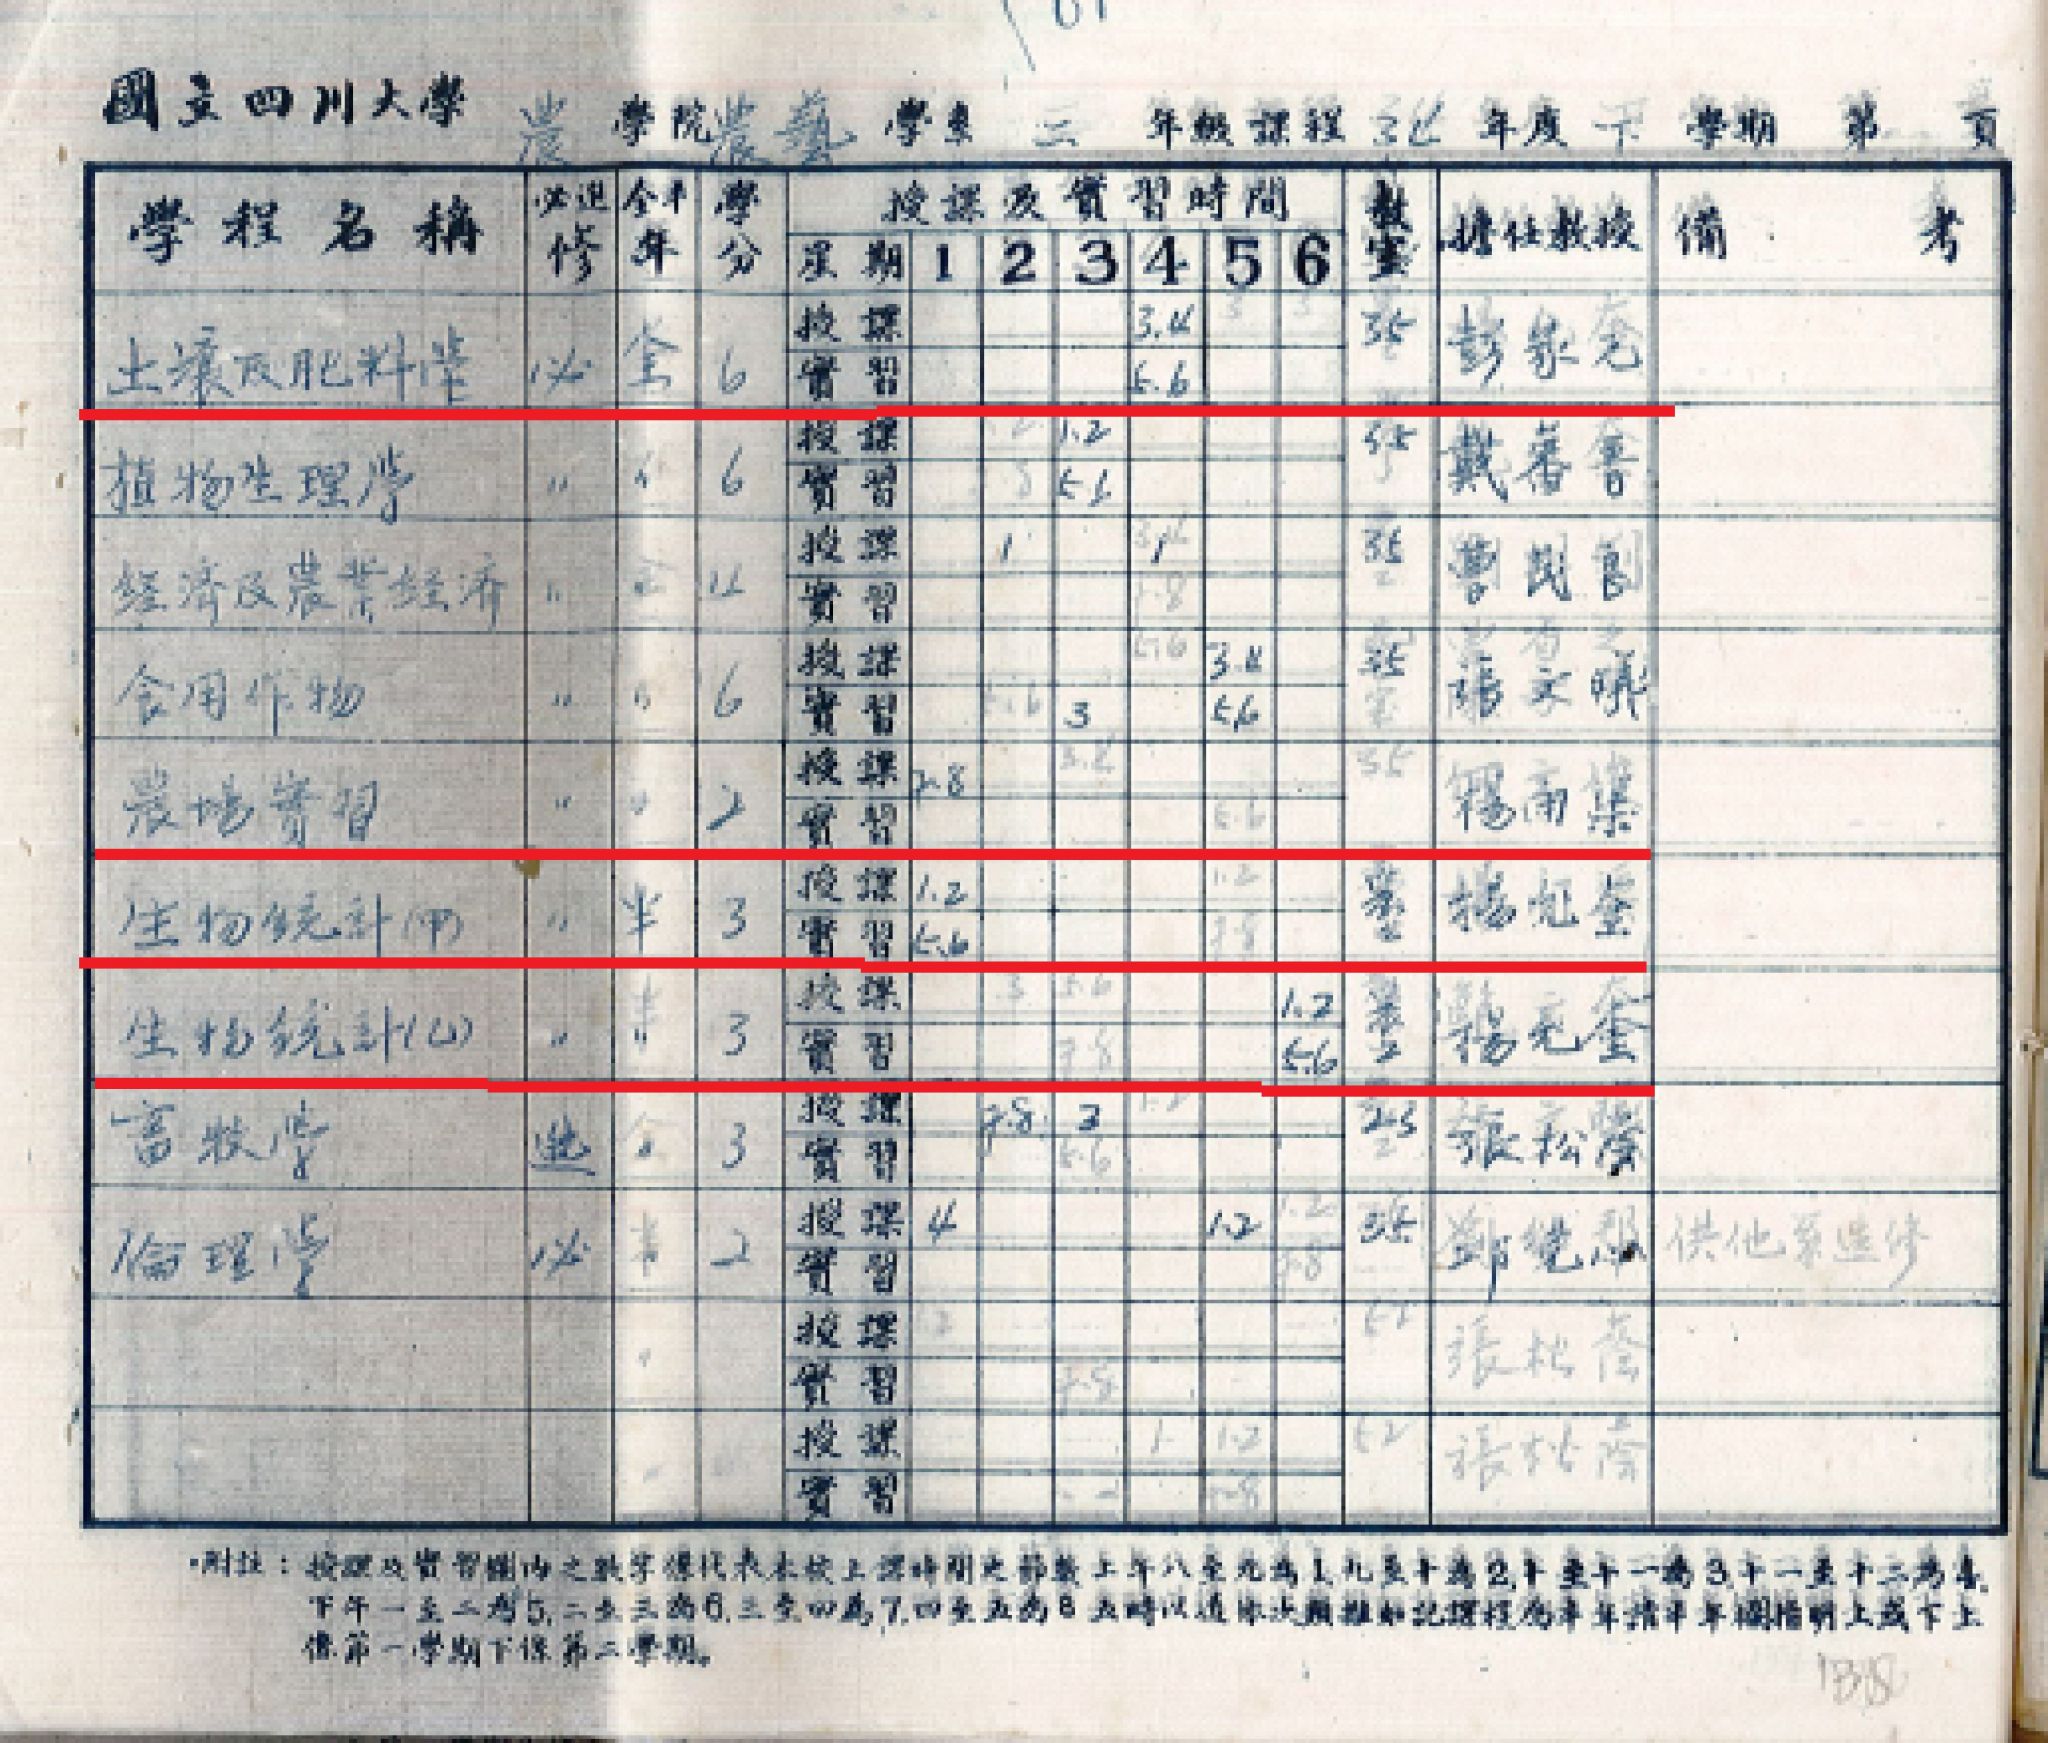 國立四川大學 農 學院 農藝 學系 三 年級課程 34 年度 下 學期 第 頁
學程名稱 必選修 全半年 學分 授課及實習時間 教室 擔任教授 備考
星期 1 2 3 4 5 6
土壤及肥料學 必 全 6 授課 3.4 35 彭家元
實習 5.6
植物生理學 〃 〃 6 授課 1.2 35 戴蕃瑨
實習
經濟及農業經濟 〃 全 4 授課 1 1 35 曹茂良
實習
食用作物 〃 〃 6 授課 3.4 35 張文曦
實習 3 5.6
農場實習 〃 〃 2 授課 7.8
實習
生物統計(甲) 〃 半 3 授課 1.2 楊允奎
實習 5.6
生物統計(乙) 〃 〃 3 授課 1.2 楊允奎
實習 5.6
畜牧學 選 全 3 授課 7.8 2 張松蔭
實習
倫理學 必 半 2 授課 4 1.2 35 供他系選修
實習
授課 52 張松蔭
實習 7.8
授課 1 1.2 52 張松蔭
實習
附註：授課及實習欄內之數字係代表本校上課時間之節數上午八至九為1,九至十為2,十至十一為3,十一至十二為4,
下午一至二為5,二至三為6,三至四為7,四至五為8五時以後依次類推如記課程為半年請半年欄描明上或下上
係第一學期下係第二學期。